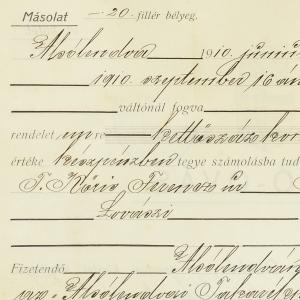 Másolat — 20 - fillér bélyeg.
Alsólendva 1910. juniu
1910. szeptember 16 án
váltónál fogva
rendelet
kettőszáz kor
értéke készpénzben tegye számolásba tud
T. Kóris Ferencz úr
Lovászi
Fizetendő Alsólendván
Alsólendvai Takarék